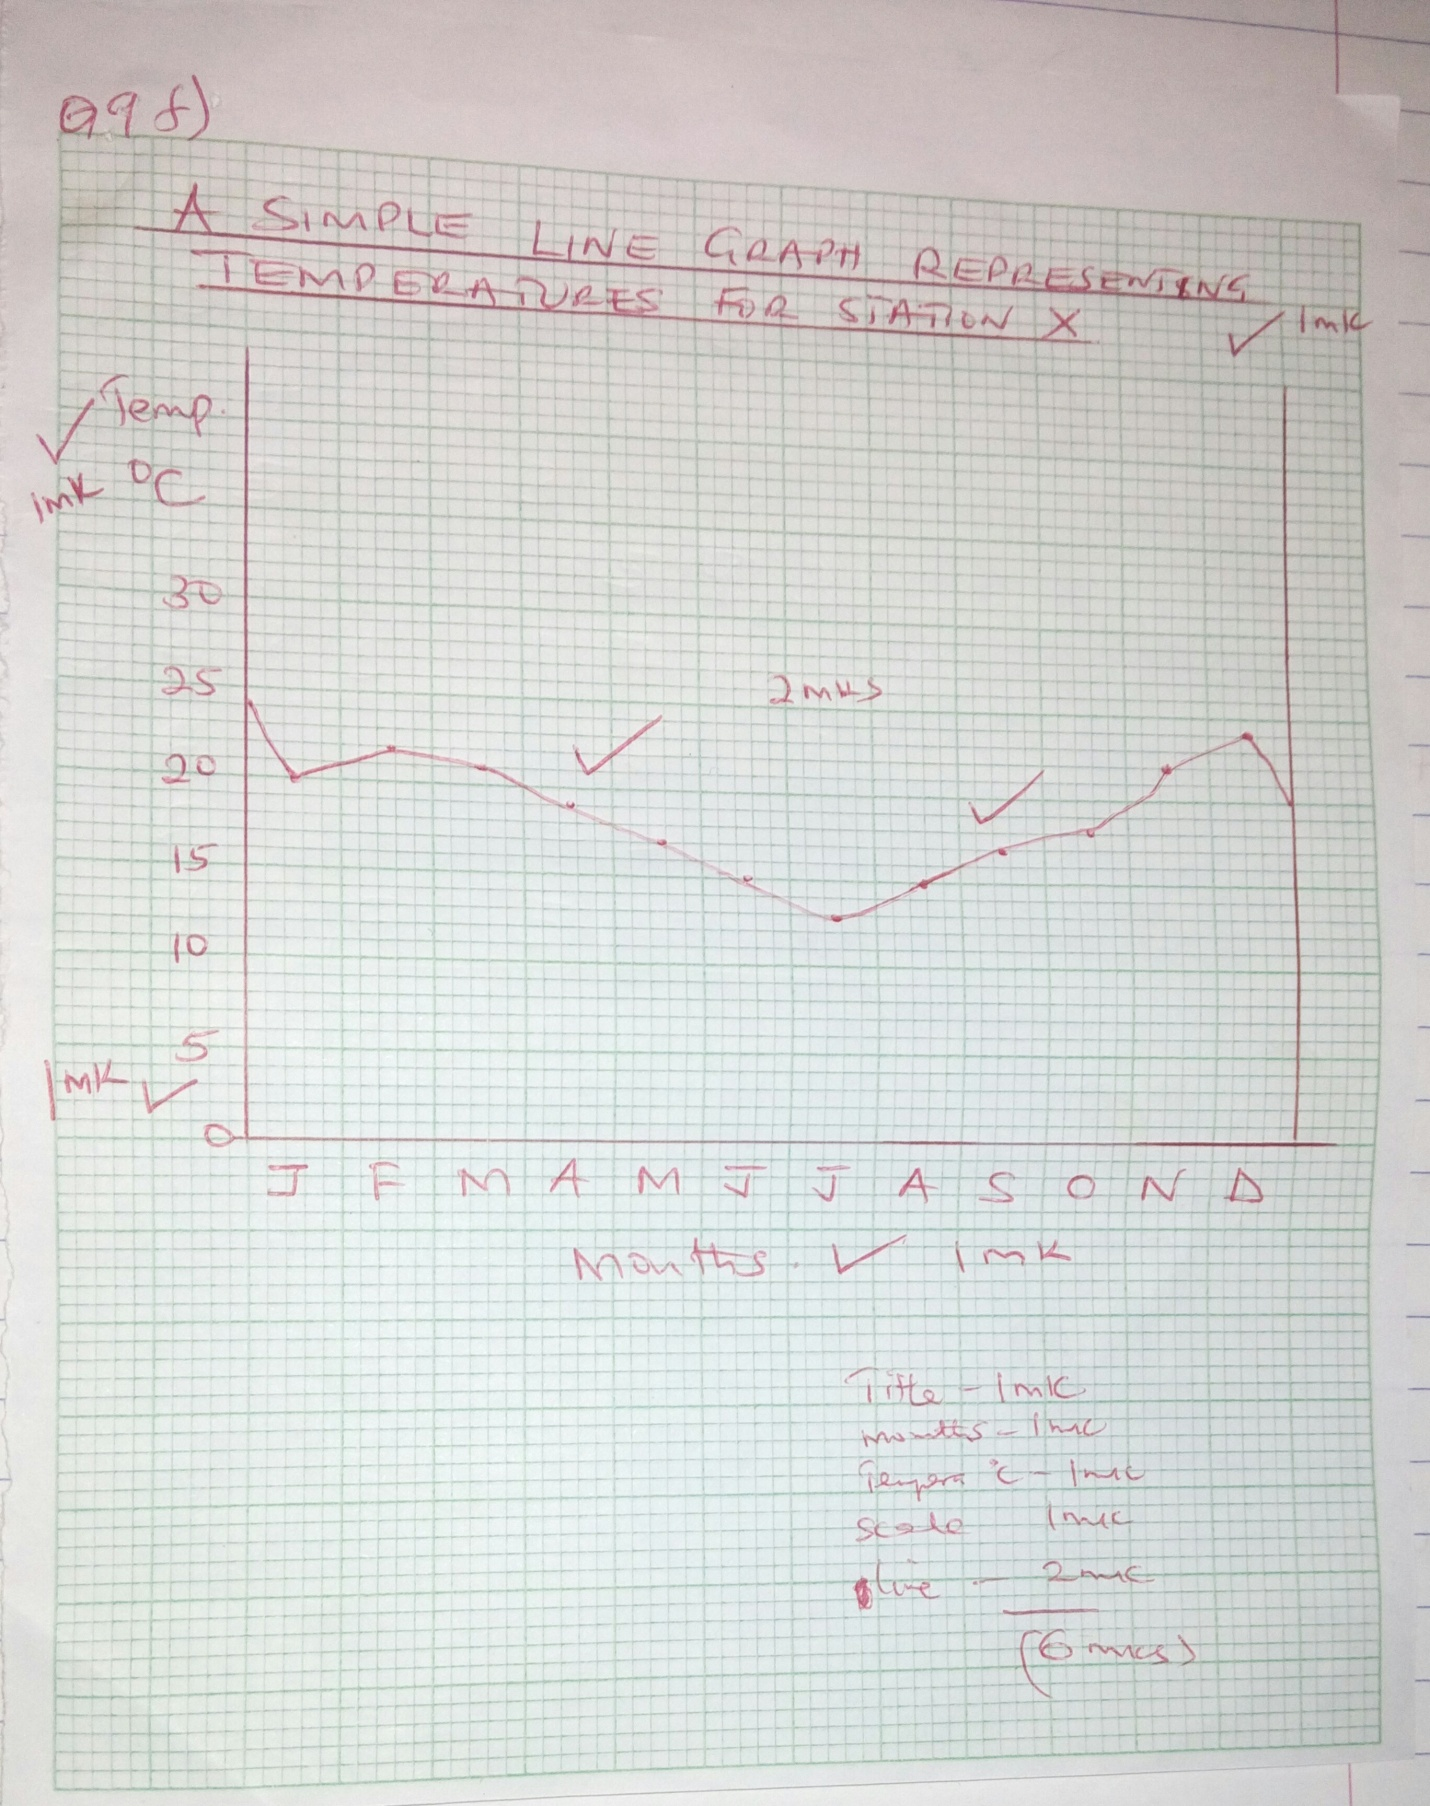 Q9 f)
A SIMPLE LINE GRAPH REPRESENTING
TEMPERATURES FOR STATION X
1mk
Temp.
1mk °C
30
25
2mks
20
15
10
5
1mk
0
J F M A M J J A S O N D
Months. 1mk
Title - 1mk
months - 1mk
Tempera °c - 1mk
scale 1mk
line - 2mk
(6 mks)